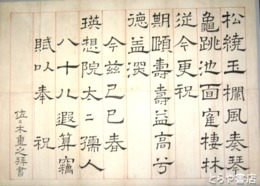 松繞玉欄風奏琴
亀跳池面窺棲林
従今更祝
期頤壽壽益高兮
徳益深
今茲己巳春
瑛想院太二孺人
八十八遐算竊
賦以奉 祝
佐々木重之拜書
とらや書店